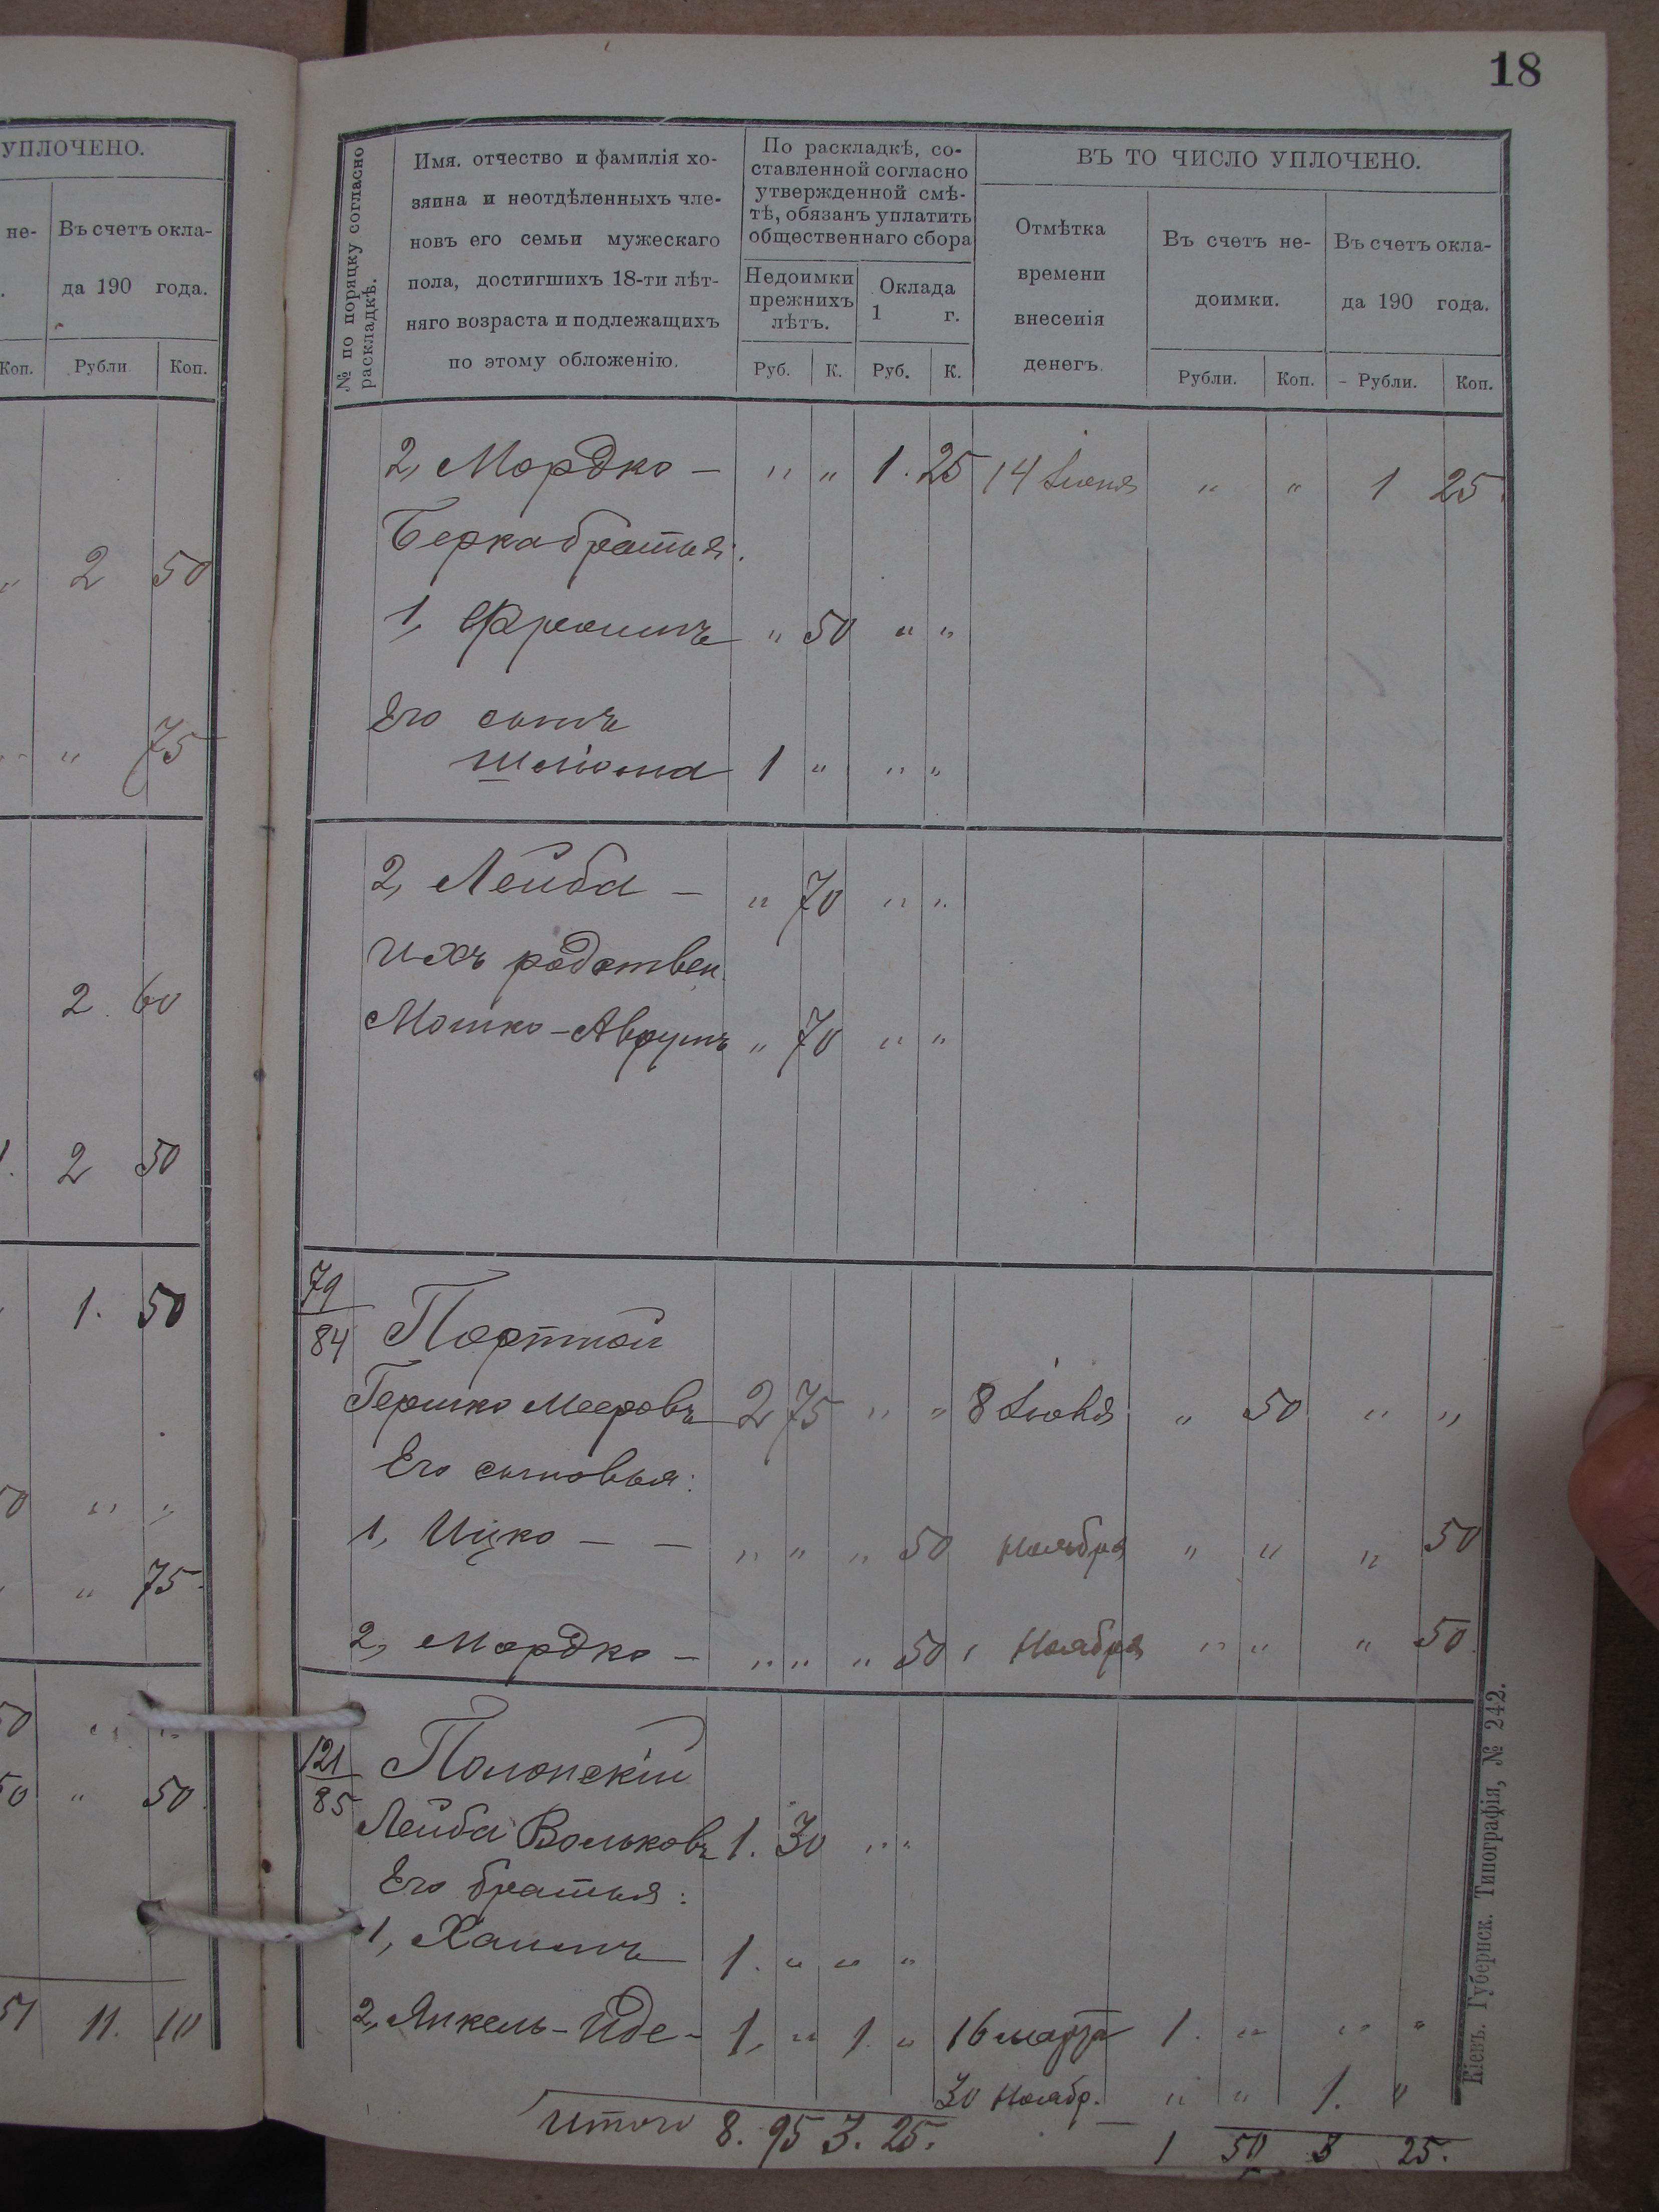 18
УПЛОЧЕНО.
не-
Въ счетъ окла-
да 190 года.
Коп. Рубли Коп.
„ 2 50
„ „ 75
2. 60
1. 2 50
1. 50
50 „ „
„ „ 75.
50 „ „
50 „ 50
51 11. 10
№ по поряцку согласно
раскладкѣ.
Имя, отчество и фамилія хо-
зяина и неотдѣленныхъ чле-
новъ его семьи мужескаго
пола, достигшихъ 18-ти лѣт-
няго возраста и подлежащихъ
по этому обложенію.
По раскладкѣ, со-
ставленной согласно
утвержденной смѣ-
тѣ, обязанъ уплатить
общественнаго сбора
Недоимки
прежнихъ
лѣтъ.
Оклада
1 г.
Руб. К. Руб. К.
ВЪ ТО ЧИСЛО УПЛОЧЕНО.
Отмѣтка
времени
внесенія
денегъ.
Въ счетъ не-
доимки.
Въ счетъ окла-
да 190 года.
Рубли. Коп. Рубли. Коп.
2, Мордко – „ „ 1. 25 14 Іюня „ „ 1 25.
Берка братья:
1, Фроимъ „ 50 „ „
Его сынъ
Шліома 1 „ „ „
2, Лейба – „ 70 „ „
Ихъ родствен.
Мошко-Аврумъ „ 70 „ „
79
84 Портной
Гершко Мееровъ 2 75 „ „ 8 Іюня „ 50 „ „
Его сыновья:
1, Ицко – – „ „ „ 50 Ноября „ „ „ 50
2, Мордко – „ „ „ 50 Ноября „ „ „ 50.
121
85 Полонскій
Лейба Вольковъ 1. 30 „ „
Его братья:
1, Хаимъ 1. „ „ „
2, Янкель-Иде- 1, „ 1. „ 16 марта 1. „ „ „
30 Ноябр. „ „ 1. „
Итого 8. 95 3. 25. 1 50 3 25.
Кіевъ. Губернск. Типографія, № 242.